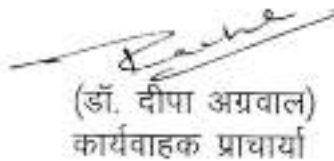 (डॉ. दीपा अग्रवाल)
कार्यवाहक प्राचार्या